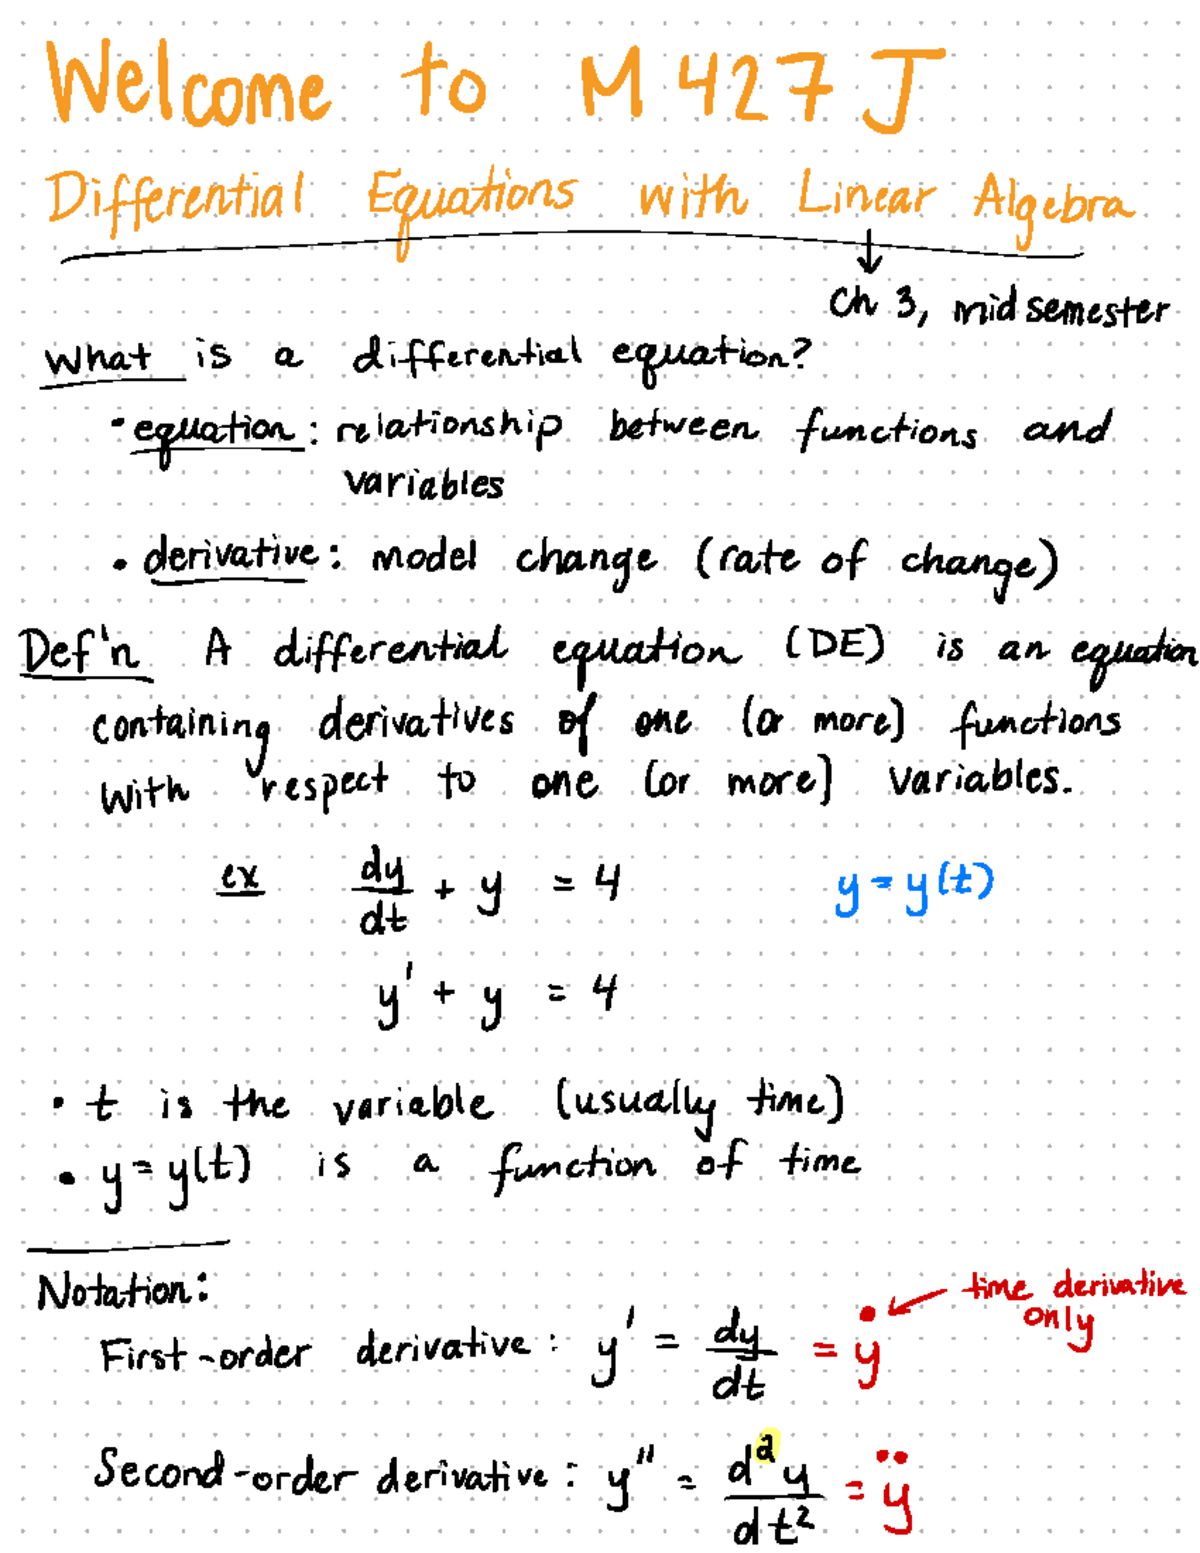 Welcome to M 427 J
Differential Equations with Linear Algebra
↓
Ch 3, mid semester
What is a differential equation?
• equation: relationship between functions and
variables
• derivative: model change (rate of change)
Def'n A differential equation (DE) is an equation
containing derivatives of one (or more) functions
with respect to one (or more) variables.
ex dy/dt + y = 4 y = y(t)
y' + y = 4
• t is the variable (usually time)
• y = y(t) is a function of time
Notation:
time derivative
only
First-order derivative: y' = dy/dt = ẏ
Second-order derivative: y'' = d²y/dt² = ÿ